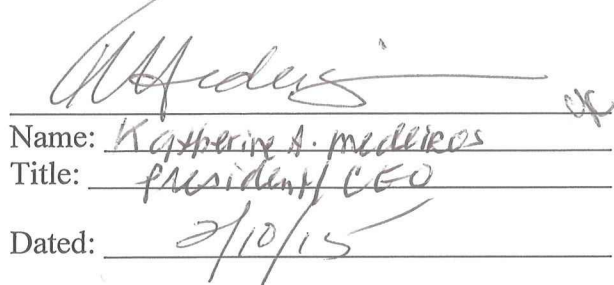 Name: Katherine A. Medeiros
Title: President/CEO
Dated: 2/10/15